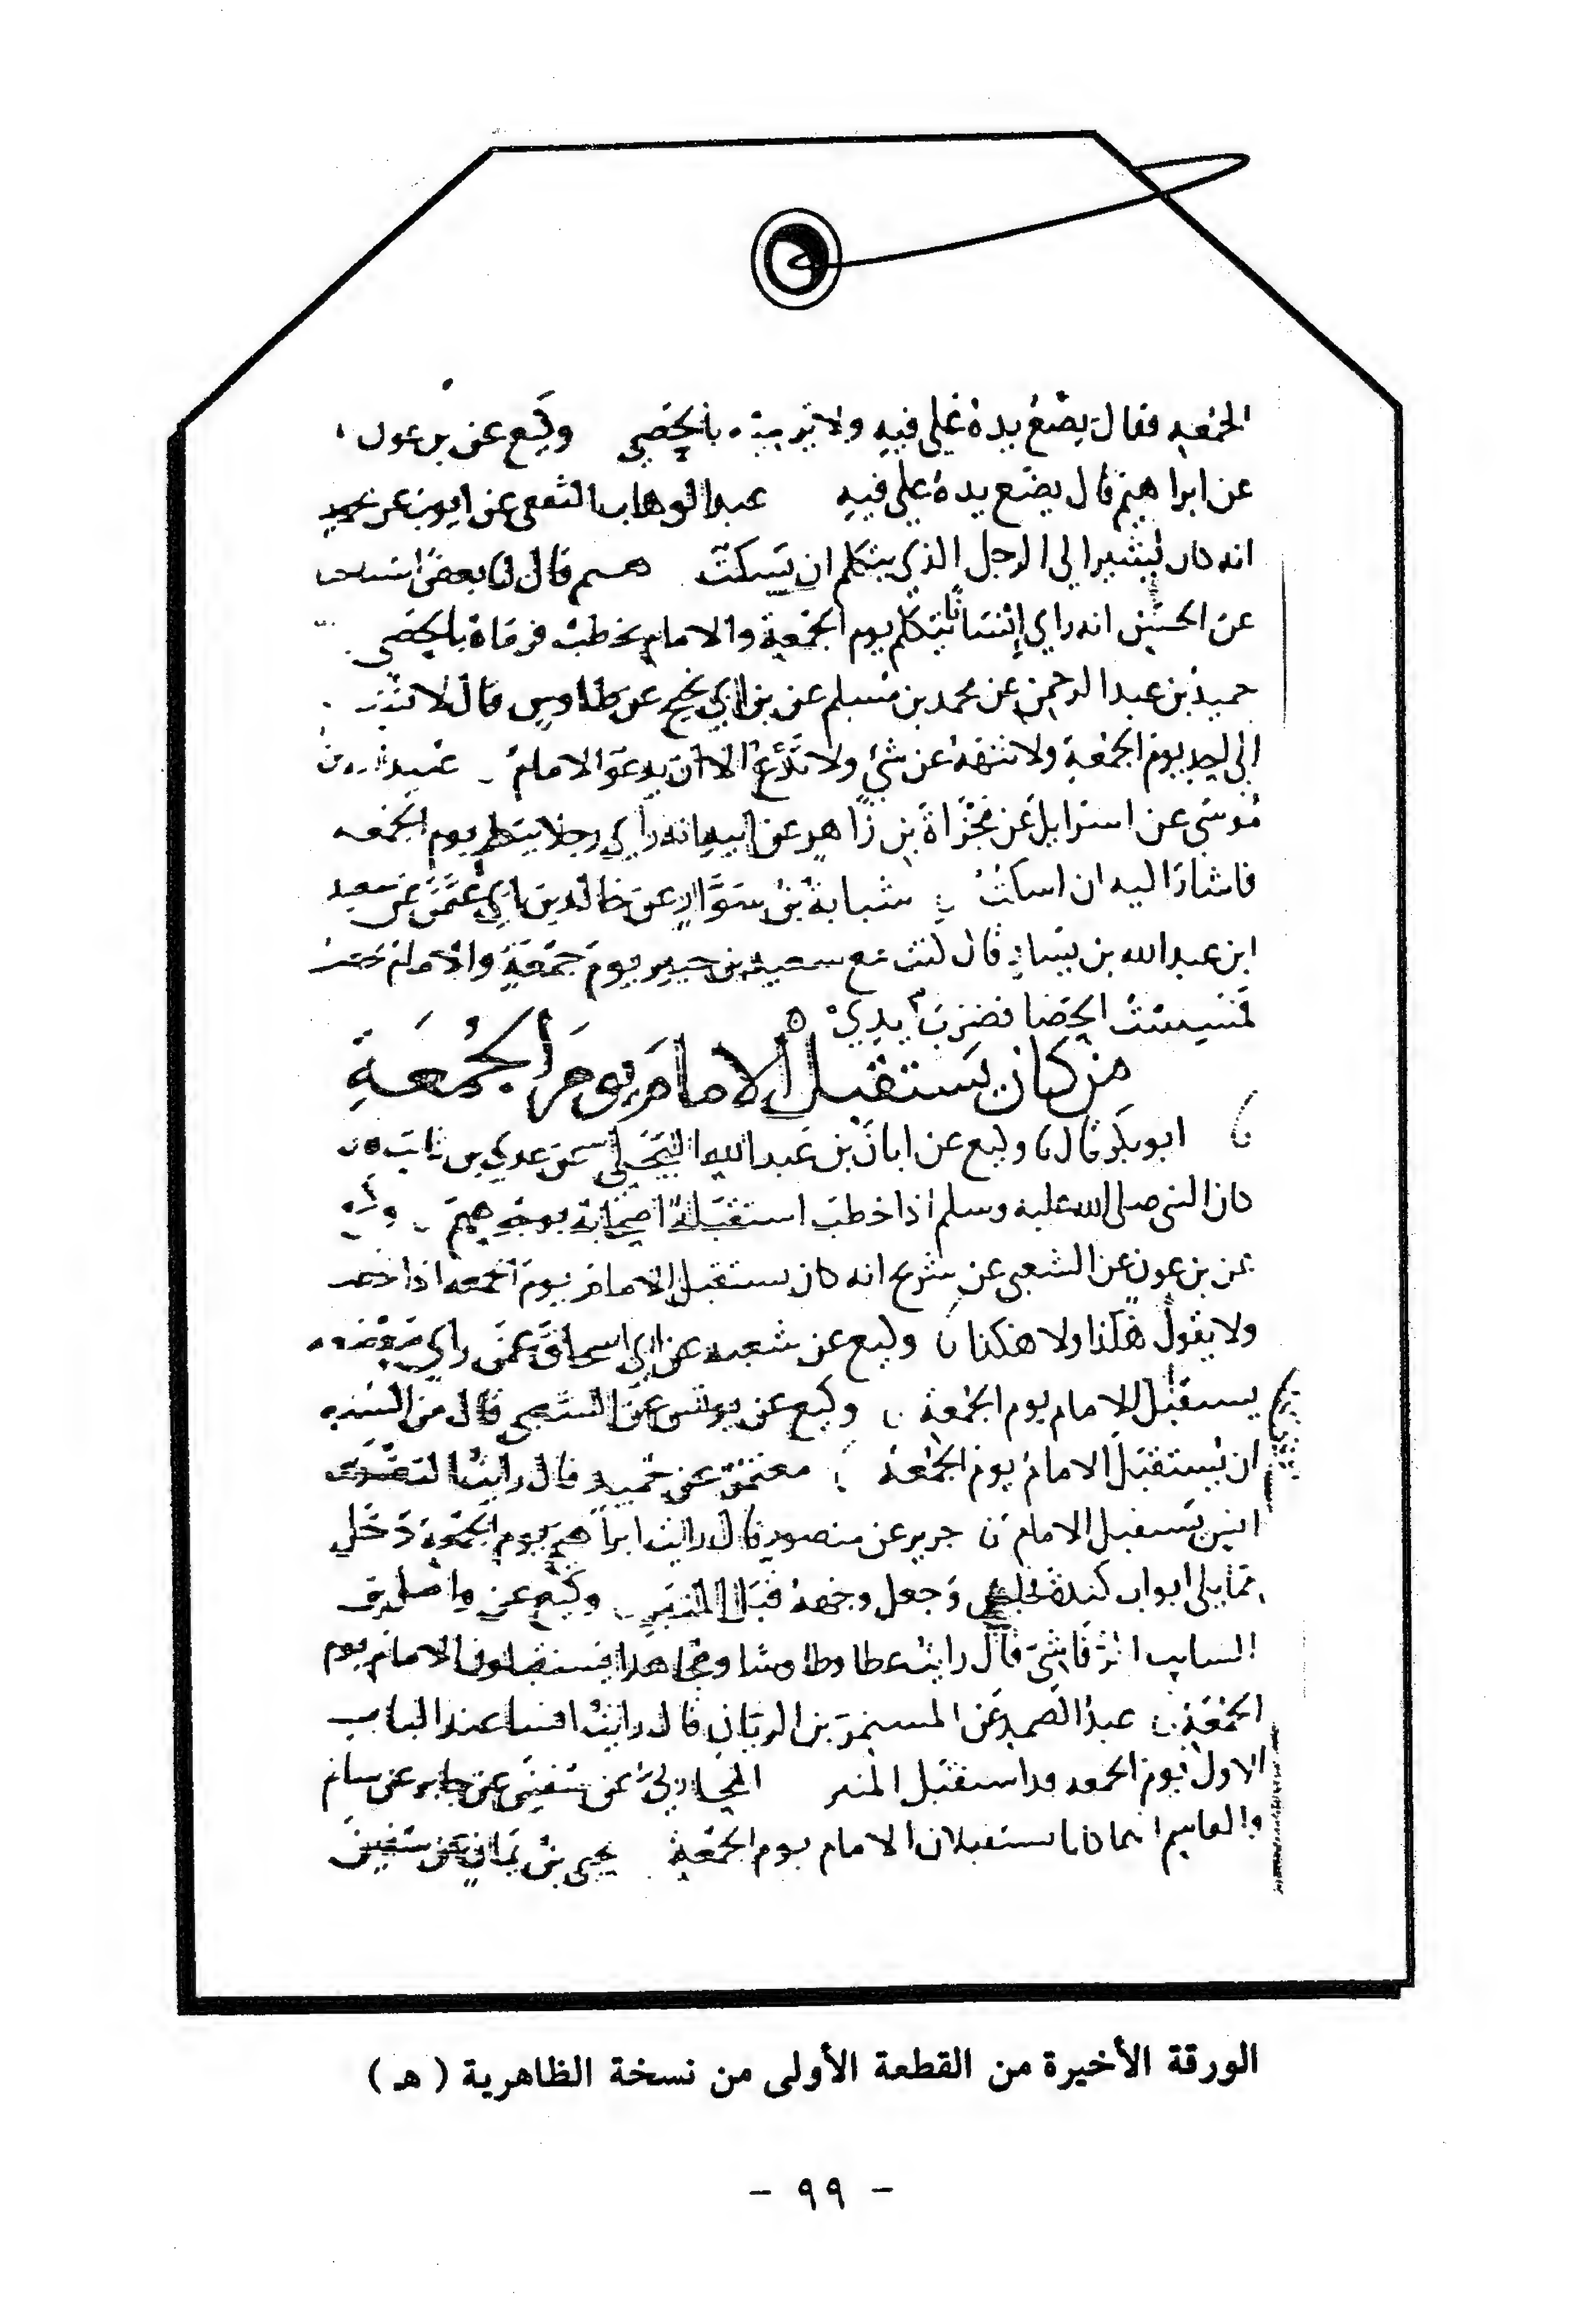 الجمعه فقال يضع يده على فيه ولا يرميه بالحصى وكيع عن بن عون
عن ابراهيم قال يضع يده على فيه عبد الوهاب الثقفى عن ايوب عن محمد
انه كان يشير الى الرجل الذي يتكلم ان يسكت هسم قال انا بعض
عن الحسن انه راى انسانا يتكلم يوم الجمعة والامام يخطب فرماه بالحصى
حميد بن عبد الرحمن عن محمد بن مسلم عن بن ابي نجيح عن طاوس قال لا تشر
الى احد يوم الجمعة ولا تنهه عن شي ولا تدع الا ان يدعو الامام
موسى عن اسرايل عن مجزاة بن زاهر عن ابيه انه راى رجلا يتكلم يوم الجمعه
فاشار اليه ان اسكت شبابة بن سوار عن خالد بن ابي عن سعيد
ابن عبد الله بن يسار قال كنت مع سعيد بن جبير يوم جمعة والامام
فمسست الحصا فضرب يدي
من كان يستقبل الامام يوم الجمعة
ابو بكر قال نا وكيع عن ابان بن عبد الله البجلي عن عدي بن ثابت قال
كان النبي صلى الله عليه وسلم اذا خطب استقبله اصحابه بوجوههم
عن بن عون عن الشعبى عن شريح انه كان يستقبل الامام يوم الجمعه اذا خطب
ولا يقول هكذا ولا هكذا وكيع عن شعبه عن ابي اسحاق عمن راى
يستقبل الامام يوم الجمعة وكيع عن يونس عن الشعبى قال من السنه
ان يستقبل الامام يوم الجمعة معتمر عن حميد قال رايت النضر بن
انس يستقبل الامام جرير عن منصور قال رايت ابراهيم يوم الجمعة دخل
مما يلى ابواب كندة فجلس وجعل وجهه قبل المنبر وكيع عن واصل بن
السايب الرقاشي قال رايت عطا وطاوسا ومجاهدا يستقبلون الامام يوم
الجمعة عبد الصمد عن المستمر بن الريان قال رايت انسا عند الباب
الاول يوم الجمعه قد استقبل المنبر المحاربي عن سفين عن جابر عن سالم
والقاسم انهما كانا يستقبلان الامام يوم الجمعة يحيى بن يمان عن سفين
الورقة الأخيرة من القطعة الأولى من نسخة الظاهرية ( هـ )
- ٩٩ -